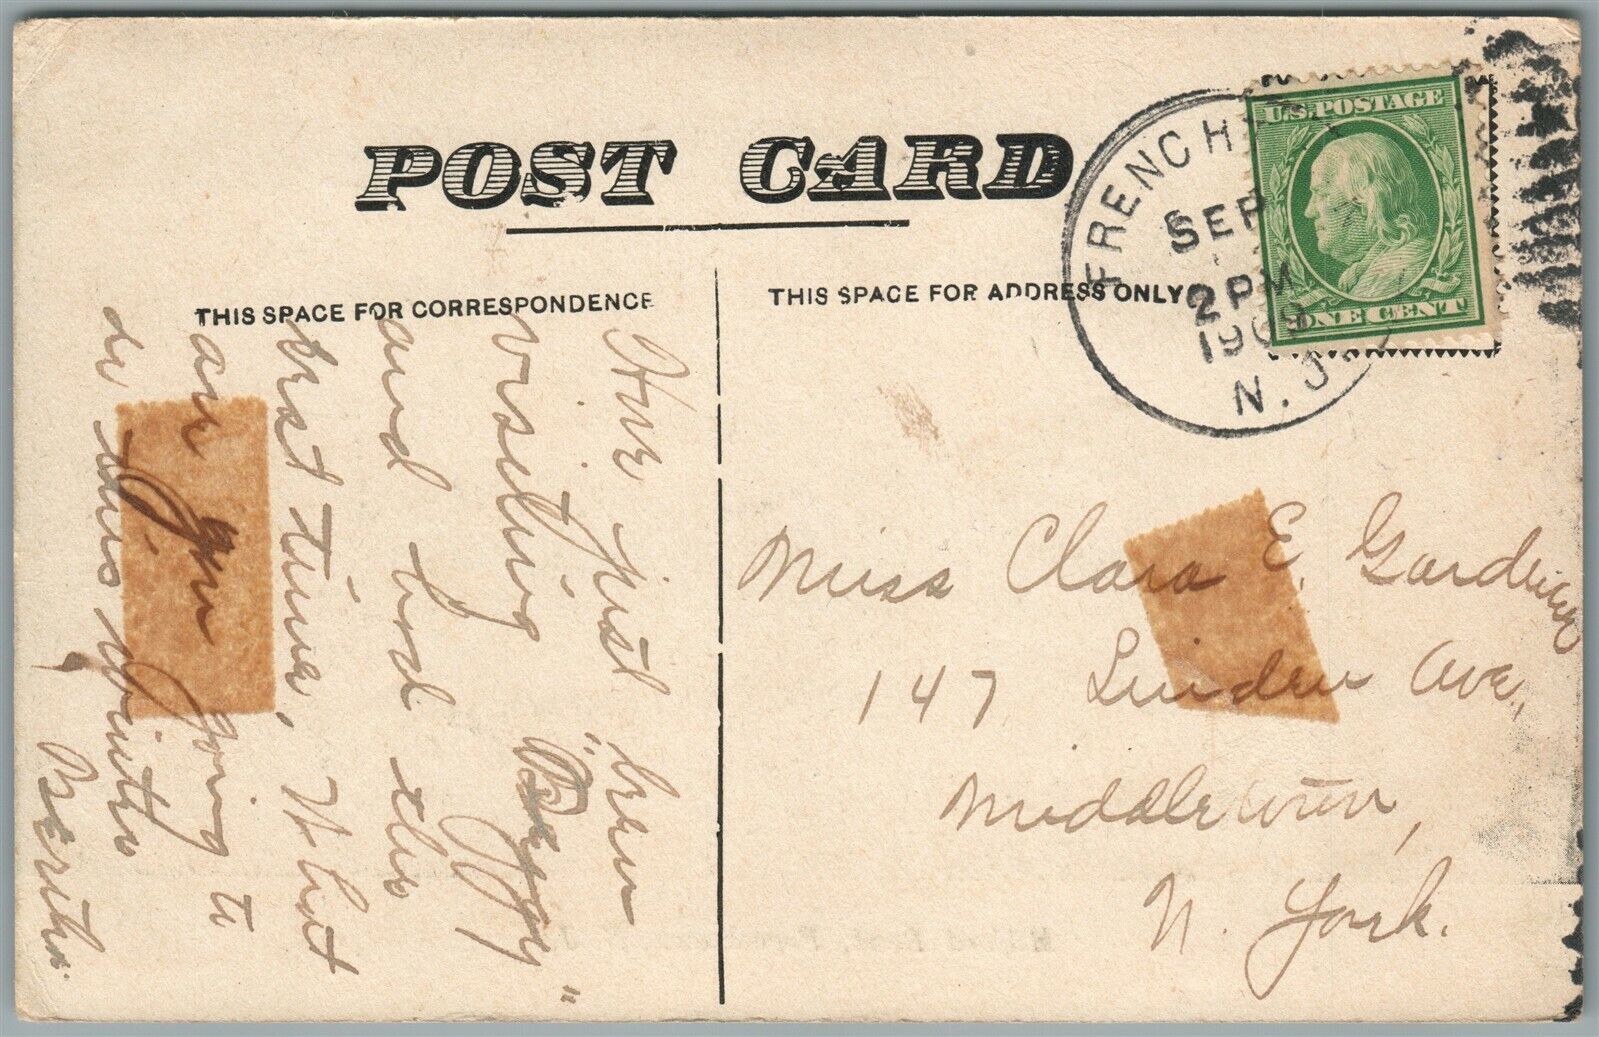 POST CARD
THIS SPACE FOR CORRESPONDENCE
THIS SPACE FOR ADDRESS ONLY
FRENCH
SEP
2 PM
1909
N. J.
U.S. POSTAGE
ONE CENT
Have just been
visiting "Peggy"
and had the
best time, What
are you going to
do this winter
Bertha.
Miss Clara E. Gardner
147 Linden Ave.,
Middletown,
N. York.